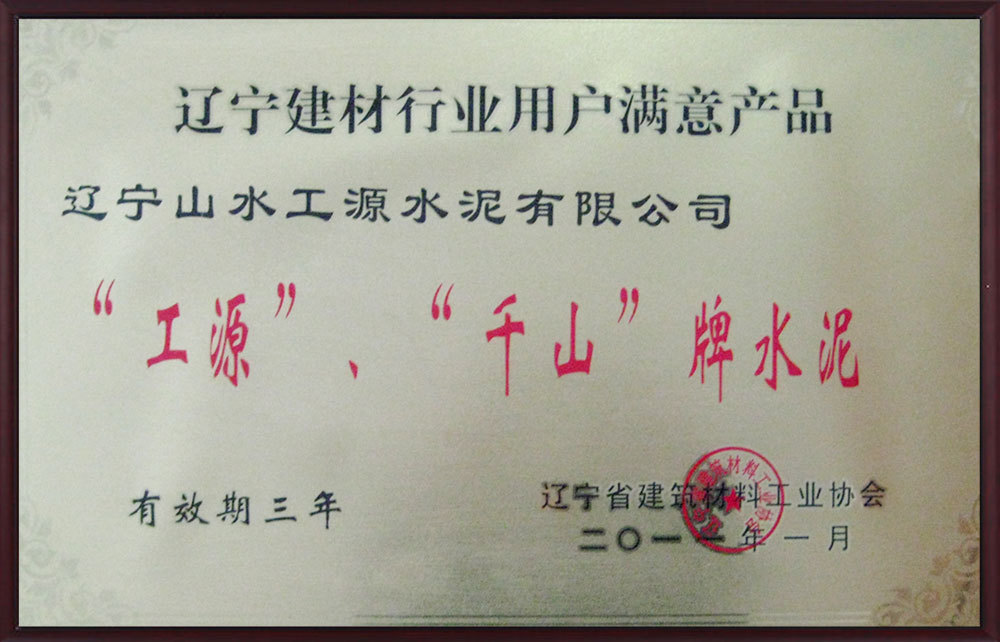 辽宁建材行业用户满意产品
辽宁山水工源水泥有限公司
“工源”、“千山”牌水泥
有效期三年
辽宁省建筑材料工业协会
二〇一一年一月